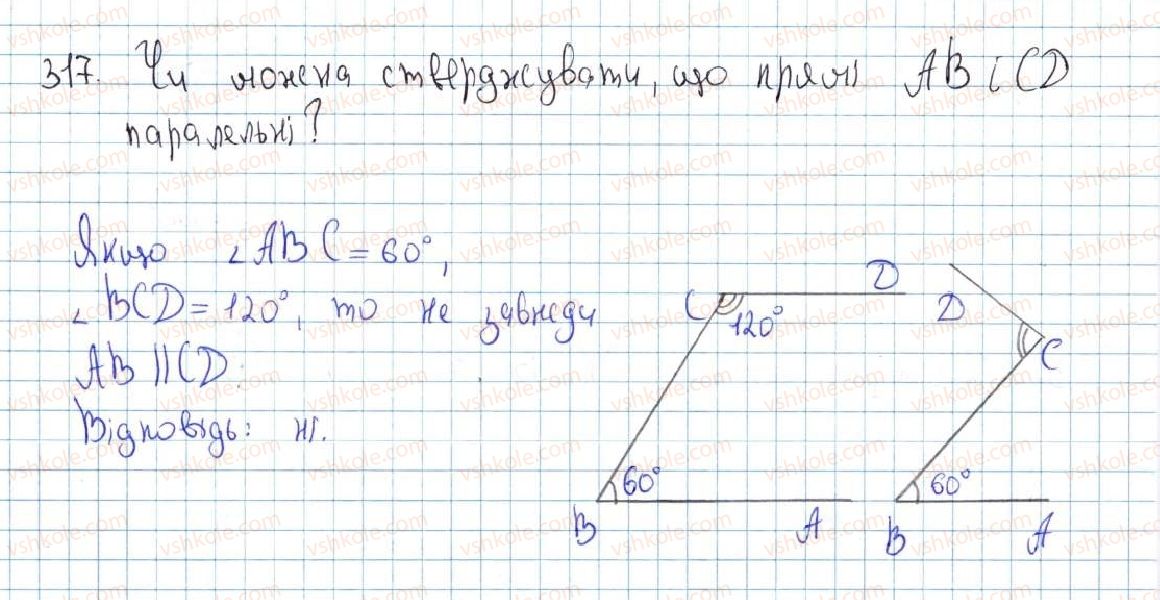 317. Чи можна стверджувати, що прямі AB і CD
паралельні?
Якщо ∠ABC = 60°,
∠BCD = 120°, то не завжди
AB || CD.
Відповідь: ні.
C D
120°
60°
B A
D
C
60°
B A
vshkole.com